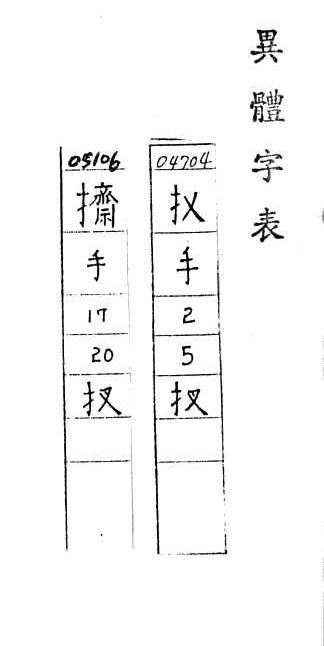 異體字表
04704
手
2
5
扠
05106
手
17
20
扠